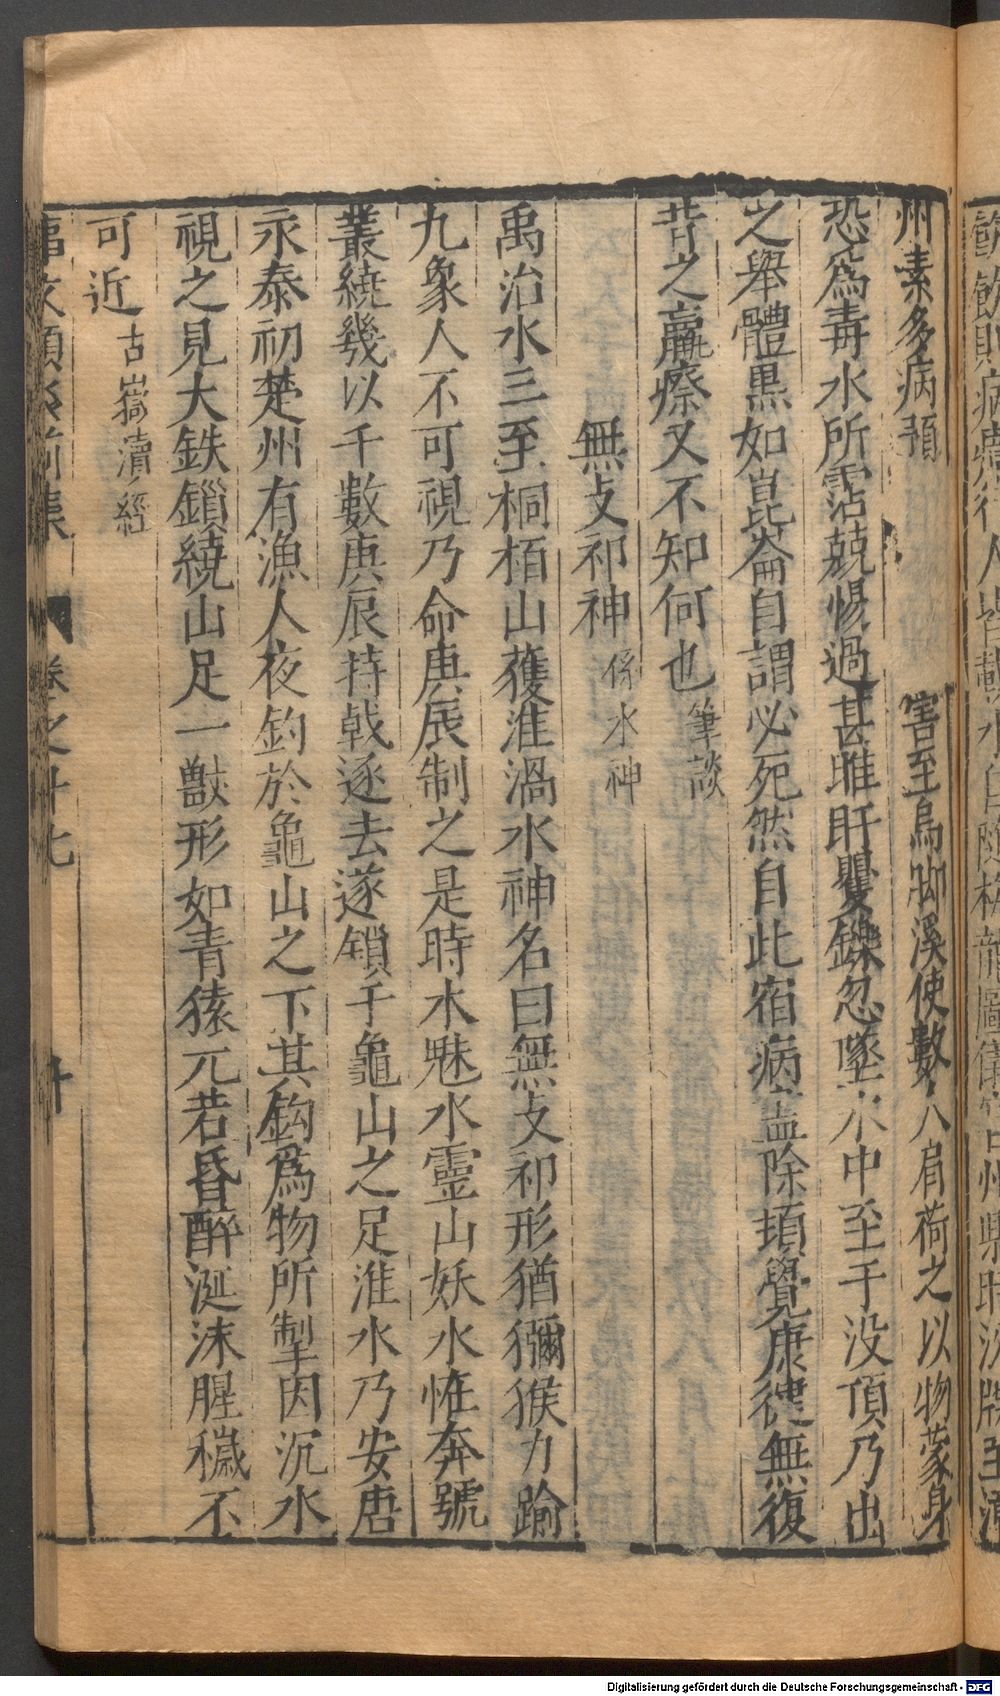 飲飲則病瘴行人皆載水自隨梅龍圖儀官州縣時沿牒至漕
州素多病預 害至烏脚溪使數人肩荷之以物蒙身
恐爲毒水所霑兢惕過甚睢盱矍鑠忽墜水中至于没頂乃出
之舉體黒如崑崙自謂必死然自此宿病盡除頓覺康健無復
昔之羸瘵又不知何也 筆談
無攴祁神 係水神
禹治水三至桐栢山獲淮渦水神名曰無攴祁形猶獼猴力踰
九象人不可視乃命庚辰制之是時木魅水靈山妖水恠奔號
叢繞幾以千數庚辰持戟逐去遂鎖于龜山之足淮水乃安唐
永泰初楚州有漁人夜釣於龜山之下其鈎爲物所掣因沉水
視之見大鉄鎖繞山足一獸形如青猿兀若昏醉涎沫腥穢不
可近 古嶽瀆經
事文類聚前集 卷之十七 十
Digitalisierung gefördert durch die Deutsche Forschungsgemeinschaft - DFG